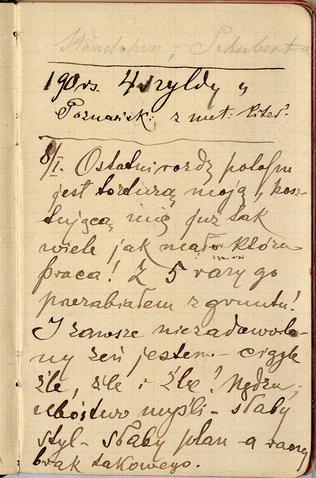 Ständchen; Schuberta
190 rs. 4 szyldy „
Poznański z met. liter.
8/I. Ostatni rozdz potopu
jest torturą moją, kosz-
tującą mię już tak
wiele jak mało która
praca! Z 5 razy go
przerabiałem z gruntu!
I zawsze niezadowolo-
ny zeń jestem - ciągle
źle, źle i źle! Nędza,
ubóstwo myśli - słaby
styl - słaby plan - a raczej
brak takowego.